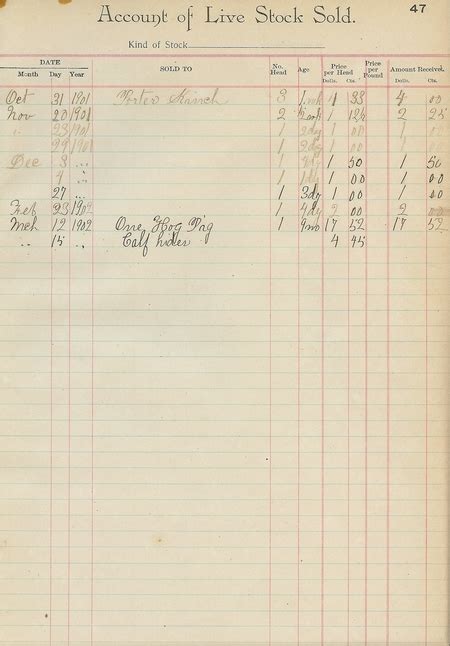 47
Account of Live Stock Sold.
Kind of Stock
DATE SOLD TO No. Head Age Price per Head Price per Pound Amount Received
Month Day Year Dolls. Cts. Dolls. Cts.
Oct 31 1901 Porter 3 1 33 4 00
Nov 20 1901 2 1 12½ 2 25
" 23 1901 1 2dy 1 00 1 00
29 1901 1 2dy 1 00 1 00
Dec 3 " 1 1 50 1 50
4 " 1 1dy 1 00 1 00
27 " 1 3dy 1 00 1 00
Feb 23 1902 1 4dy 2 00 2 00
Mch 12 1902 One Hog Pig 1 9mo 17 52 17 52
" 15 Calf hides 4 45